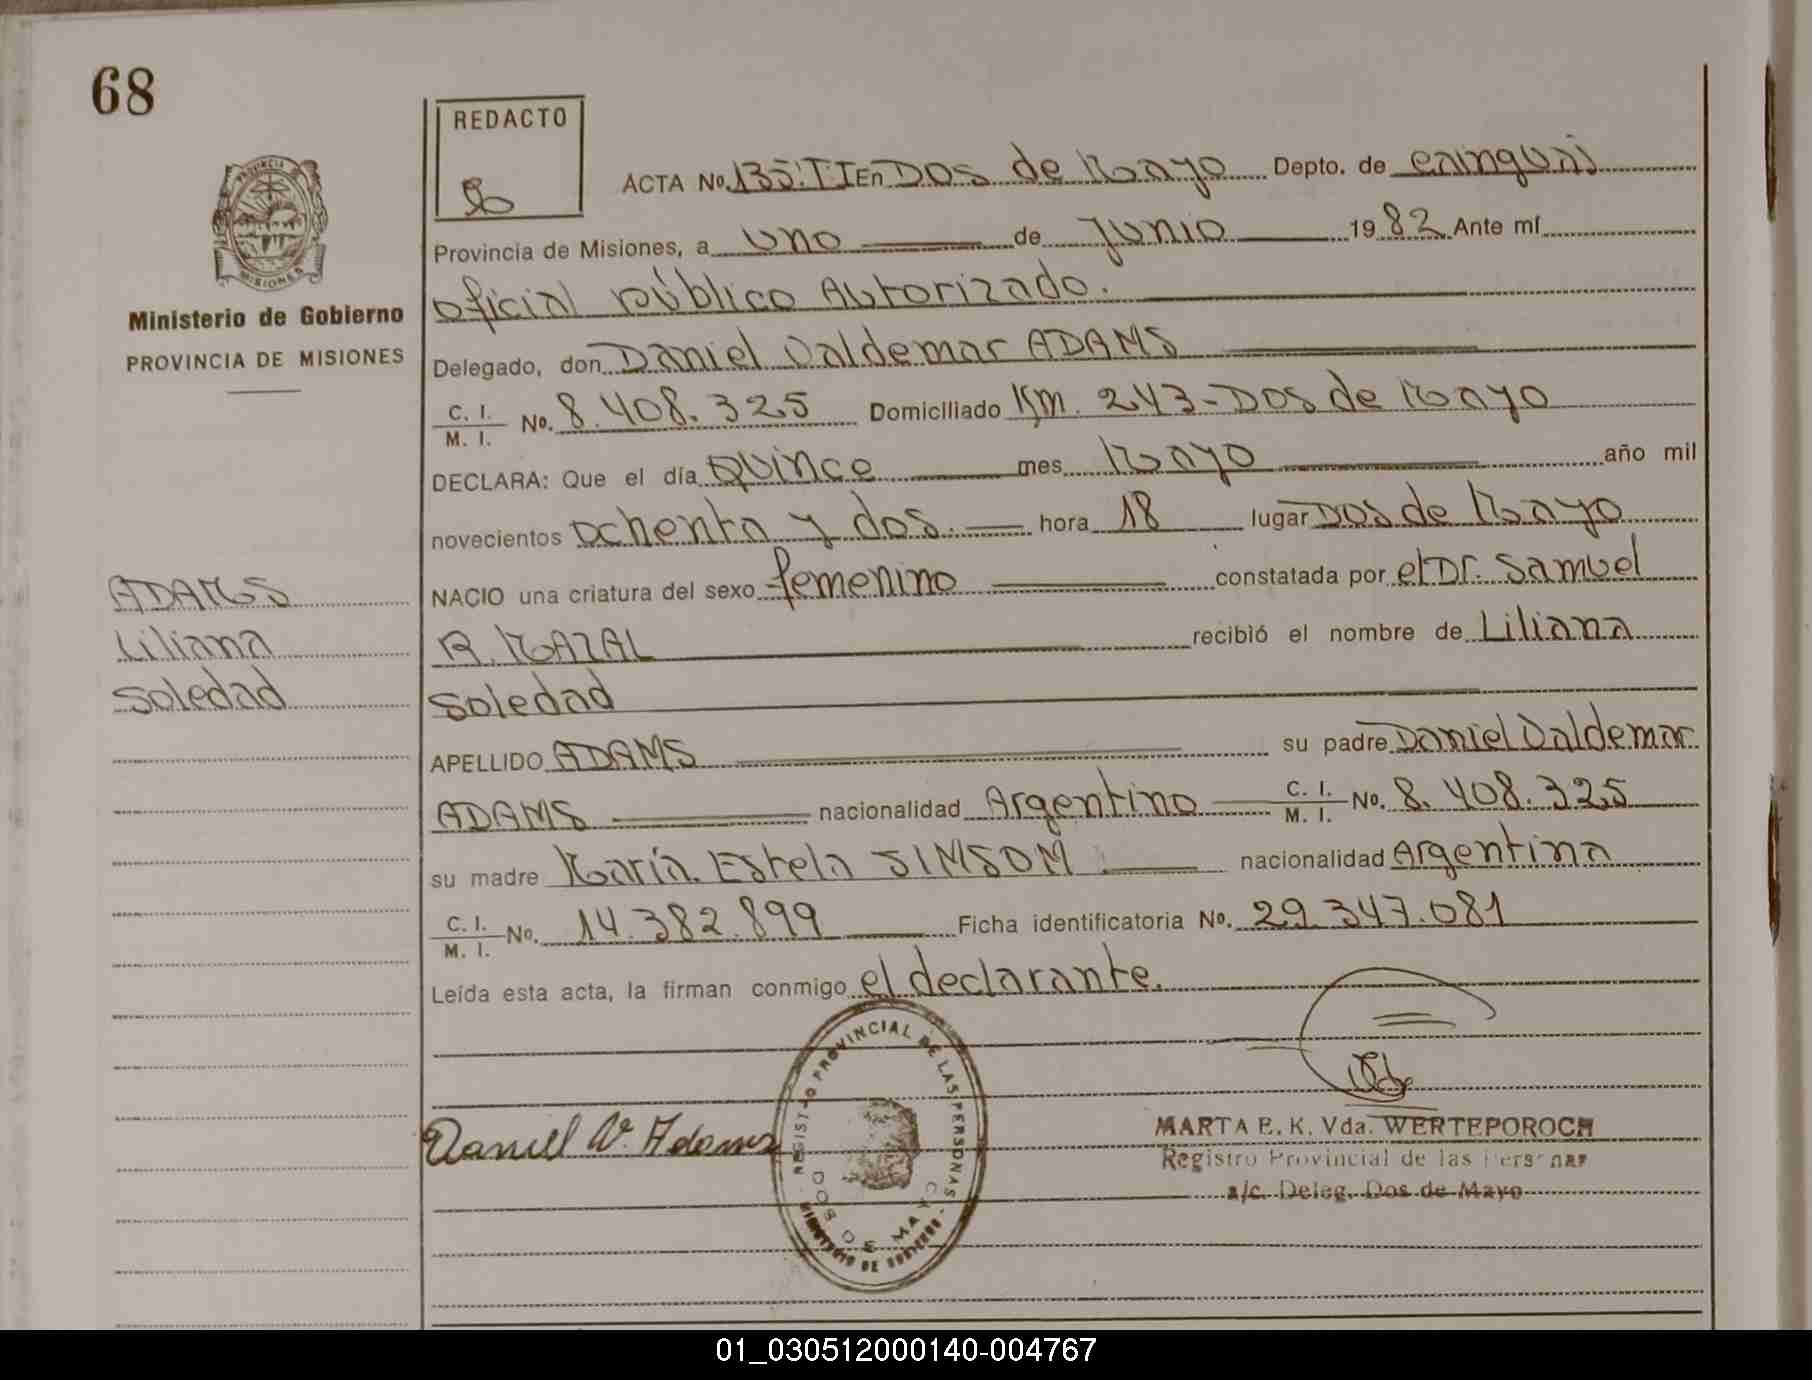 68
REDACTO
ACTA No. 135.TI En Dos de Mayo Depto. de Cainguas
Provincia de Misiones, a uno de Junio 1982 Ante mí
Oficial público Autorizado.
Delegado, don Daniel Valdemar ADAMS
C. I. / M. I. No. 8.408.325 Domiciliado Km. 243-Dos de Mayo
DECLARA: Que el día Quince mes Mayo año mil
novecientos Ochenta y dos. hora 18 lugar Dos de Mayo
NACIO una criatura del sexo femenino constatada por el Dr. Samuel
R. MAZAL recibió el nombre de Liliana
Soledad
APELLIDO ADAMS su padre Daniel Valdemar
ADAMS nacionalidad Argentino C. I. / M. I. No. 8.408.325
su madre María Estela SIMSOM nacionalidad Argentina
C. I. / M. I. No. 14.382.899 Ficha identificatoria No. 29.347.081
Leída esta acta, la firman conmigo el declarante.
PROVINCIA
MISIONES
Ministerio de Gobierno
PROVINCIA DE MISIONES
ADAMS
Liliana
Soledad
Daniel V. Adams
REGISTRO PROVINCIAL DE LAS PERSONAS
MINISTERIO DE GOBIERNO
DOS DE MAYO
MARTA E. K. Vda. WERTEPOROCH
Registro Provincial de las Personas
a/c. Deleg. Dos de Mayo
01_030512000140-004767